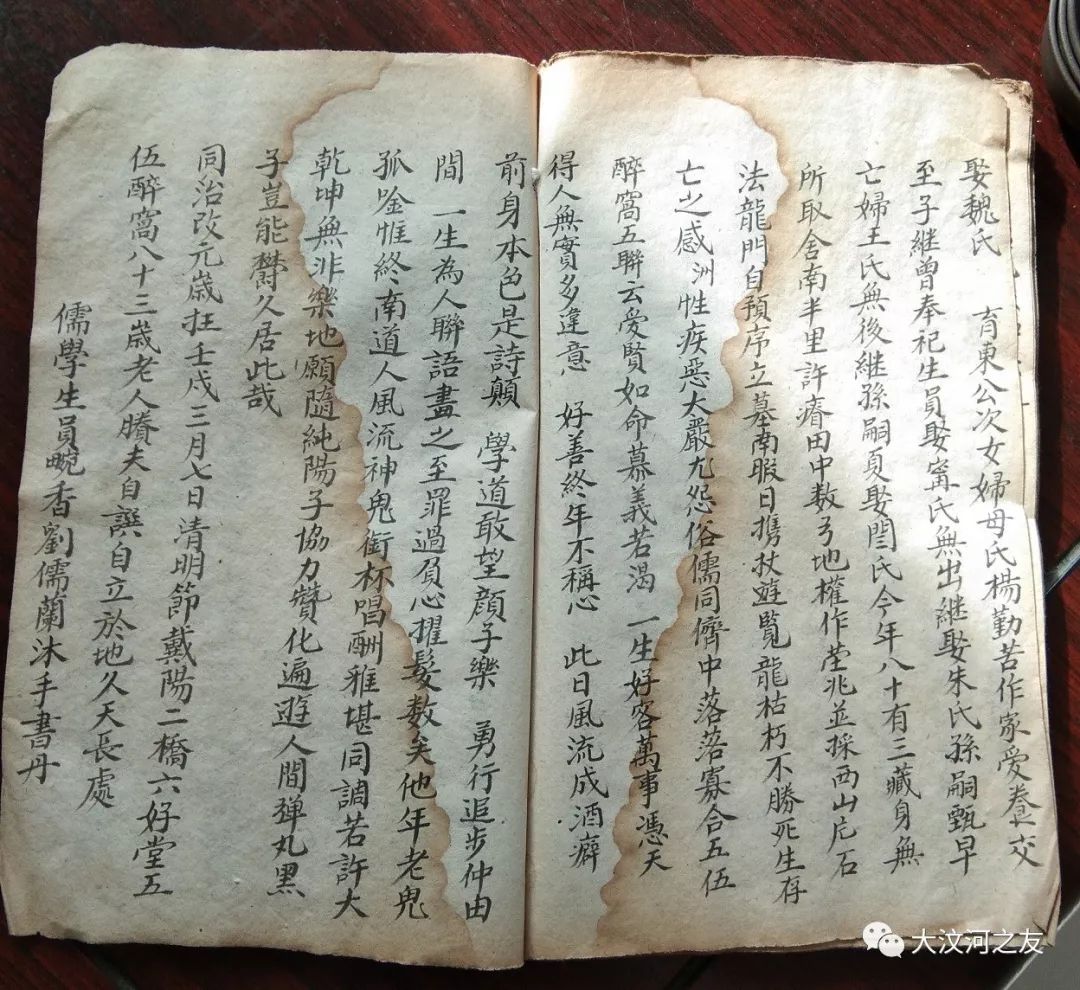 娶魏氏　育東公次女婦母氏楊勤苦作家愛養交
至子継曾奉祀生員娶甯氏無出継娶朱氏孫嗣甄早
亡婦王氏無後継孫嗣夏娶閆氏今年八十有三藏身無
所取舍南半里許瘠田中数弓地權作塋兆並採西山庀石
法龍門自預序立墓南暇日携杖遊覧龍枯朽不勝死生存
亡之感洲性疾惡大嚴尤怨俗儒同儕中落落寡合五伍
醉窩五聯云愛賢如命慕義若渴　一生好客萬事憑天
得人無實多違意　好善終年不稱心　此日風流成酒癖
前身本色是詩顛　學道敢望顔子樂　勇行追步仲由
間　一生為人聯語盡之至罪過負心擢髮数矣他年老鬼
孤唫惟終南道人風流神鬼銜杯唱酬雅堪同調若許大
乾坤無非樂地願隨純陽子協力贊化遍遊人間弹丸黑
子豈能欝久居此哉
同治改元歲在壬戌三月七日清明節戴陽二橋六好堂五
伍醉窩八十三歲老人賸夫自譔自立於地久天長處
儒學生員畹香劉儒蘭沐手書丹
大汶河之友